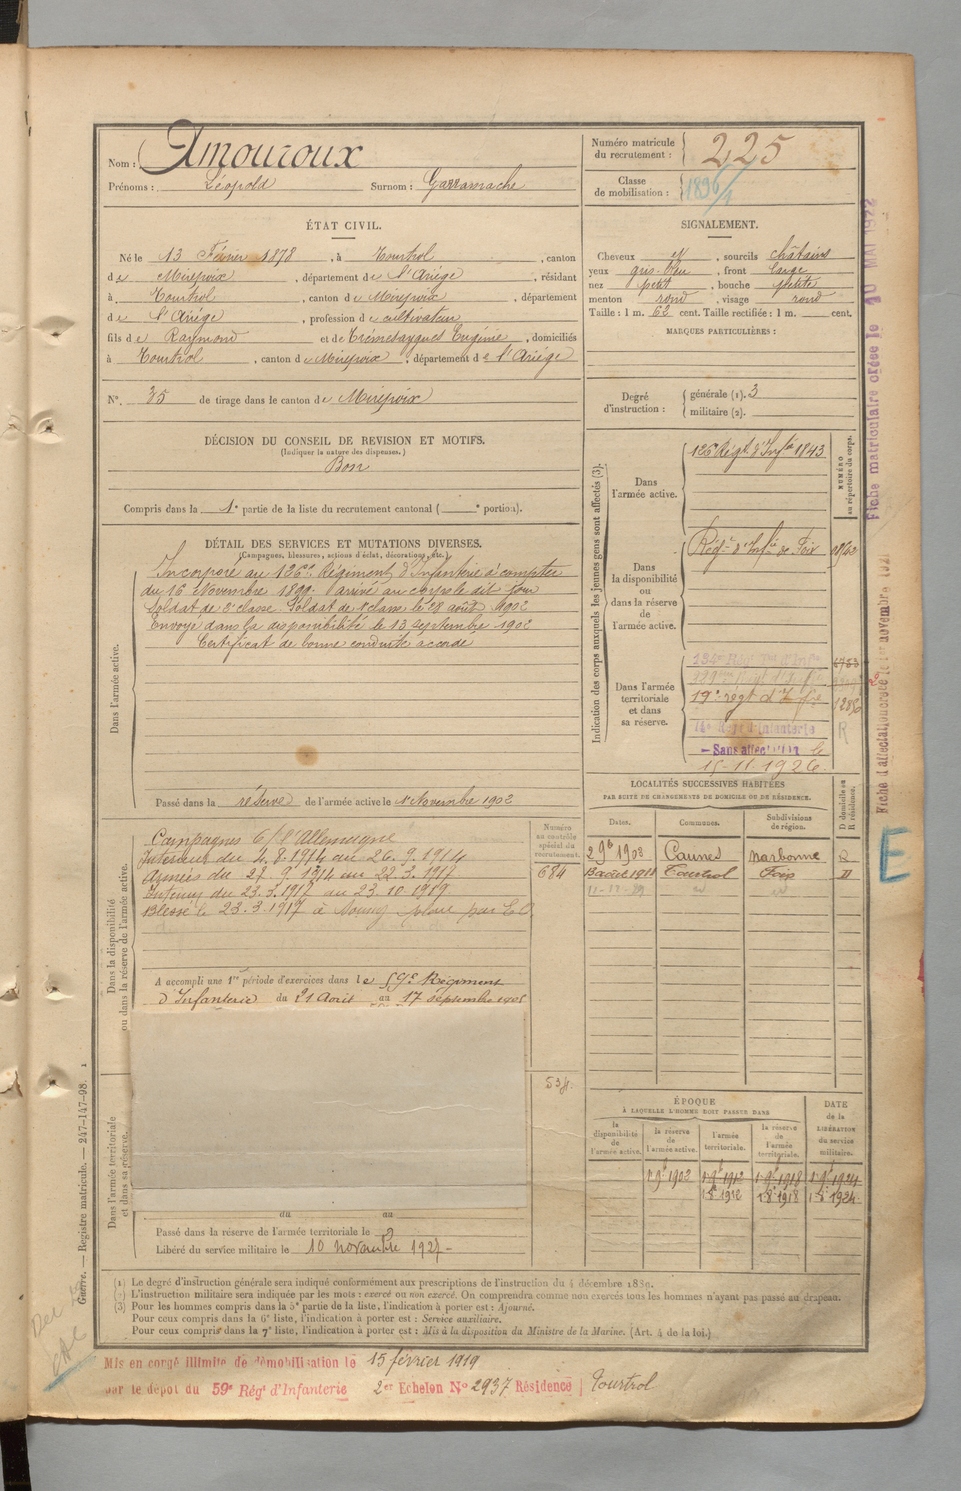 Nom : Amouroux
Prénoms : Léopold Surnom : Garramache
Numéro matricule du recrutement : 225
Classe de mobilisation : 1896/1
ÉTAT CIVIL.
Né le 13 Février 1878, à Tourtrol, canton
de Mirepoix, département de l'Ariége, résidant
à Tourtrol, canton de Mirepoix, département
de l'Ariége, profession de cultivateur
fils de Raymond et de Trémesaygues Eugénie, domiciliés
à Tourtrol, canton de Mirepoix, département de l'Ariége
N° 35 de tirage dans le canton de Mirepoix
SIGNALEMENT.
Cheveux et, sourcils châtains
yeux gris-bleu, front large
nez petit, bouche petite
menton rond, visage rond
Taille : 1 m. 62 cent. Taille rectifiée : 1 m. cent.
MARQUES PARTICULIÈRES :
Degré d'instruction : générale (1). 3
militaire (2).
DÉCISION DU CONSEIL DE REVISION ET MOTIFS.
(Indiquer la nature des dispenses.)
Bon
Compris dans la 1e partie de la liste du recrutement cantonal ( e portion).
DÉTAIL DES SERVICES ET MUTATIONS DIVERSES.
(Campagnes, blessures, actions d'éclat, décorations, etc.)
Dans l'armée active.
Incorporé au 126e Régiment d'Infanterie à compter
du 16 Novembre 1899. Arrivé au corps le dit jour
Soldat de 2e classe. Soldat de 1e classe le 28 août 1902
Envoyé dans la disponibilité le 13 septembre 1902
Certificat de bonne conduite accordé
Passé dans la réserve de l'armée active le 1er Novembre 1902
Indication des corps auxquels les jeunes gens sont affectés (3).
NUMÉRO au répertoire du corps.
Dans l'armée active.
126e Régt d'Infie 1843
Dans la disponibilité ou dans la réserve de l'armée active.
Régt d'Infie de Foix
Dans l'armée territoriale et dans sa réserve.
19e régt d'Infie
14e Régt d'infanterie
Sans affectation le
15-11-1926.
R
LOCALITÉS SUCCESSIVES HABITÉES
PAR SUITE DE CHANGEMENTS DE DOMICILE OU DE RÉSIDENCE.
Dates. Communes. Subdivisions de région. D domicile ou R résidence.
2 9b 1908 Caunes Narbonne R
13 août 1911 Tourtrol Foix D
Dans la disponibilité ou dans la réserve de l'armée active.
Numéro au contrôle spécial du recrutement.
684
Campagnes C/ l'Allemagne
Intérieur du 4.8.1914 au 26.9.1914
Armées du 27.9.1914 au 22.3.1917
Intérieur du 23.3.1917 au 23.10.1919
A accompli une 1re période d'exercices dans le 59e Régiment
d'Infanterie du 21 Août au 17 septembre 1908
534
Dans l'armée territoriale et dans sa réserve.
du au
Passé dans la réserve de l'armée territoriale le
Libéré du service militaire le 10 novembre 1927
ÉPOQUE
À LAQUELLE L'HOMME DOIT PASSER DANS
la disponibilité de l'armée active. la réserve de l'armée active. l'armée territoriale. la réserve de l'armée territoriale. DATE de la LIBÉRATION du service militaire.
1 9b 1902 1 9b 1912 1 9b 1918 1 9b 1924
1 8 1912 1 8 1918 1 8 1924
(1) Le degré d'instruction générale sera indiqué conformément aux prescriptions de l'instruction du 4 décembre 1889.
(2) L'instruction militaire sera indiquée par les mots : exercé ou non exercé. On comprendra comme non exercés tous les hommes n'ayant pas passé au drapeau.
(3) Pour les hommes compris dans la 5e partie de la liste, l'indication à porter est : Ajourné.
Pour ceux compris dans la 6e liste, l'indication à porter est : Service auxiliaire.
Pour ceux compris dans la 7e liste, l'indication à porter est : Mis à la disposition du Ministre de la Marine. (Art. 4 de la loi.)
Mis en congé illimité de démobilisation le 15 février 1919
par le dépôt du 59e Régt d'Infanterie 2er Echelon No 2937 Résidence Tourtrol
Guerre. — Registre matricule. — 247-147-98. 1
Fiche matriculaire créée le 10 MAI 1922
Fiche d'affectation créée le 1er novembre 1921
E